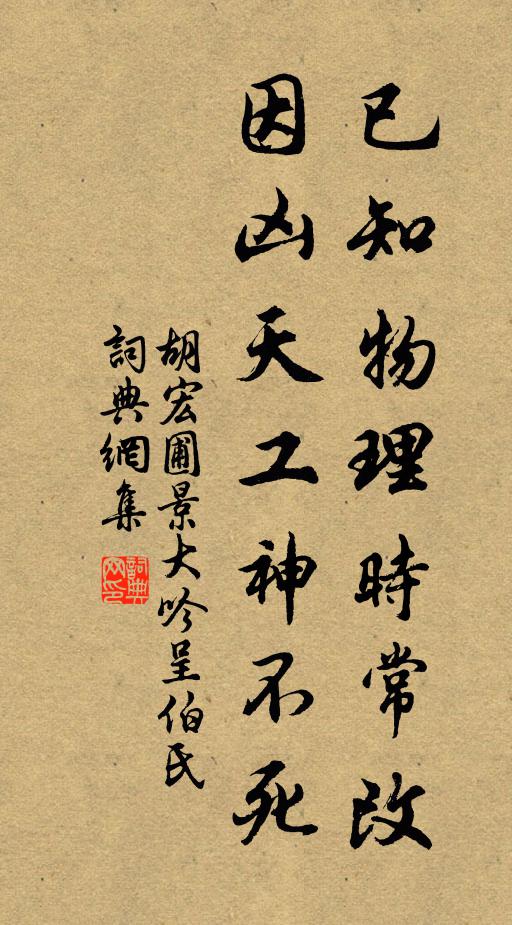 已知物理時常改
因凶天工神不死
胡宏圃景大吟呈伯氏
詞典網集
詞典网印